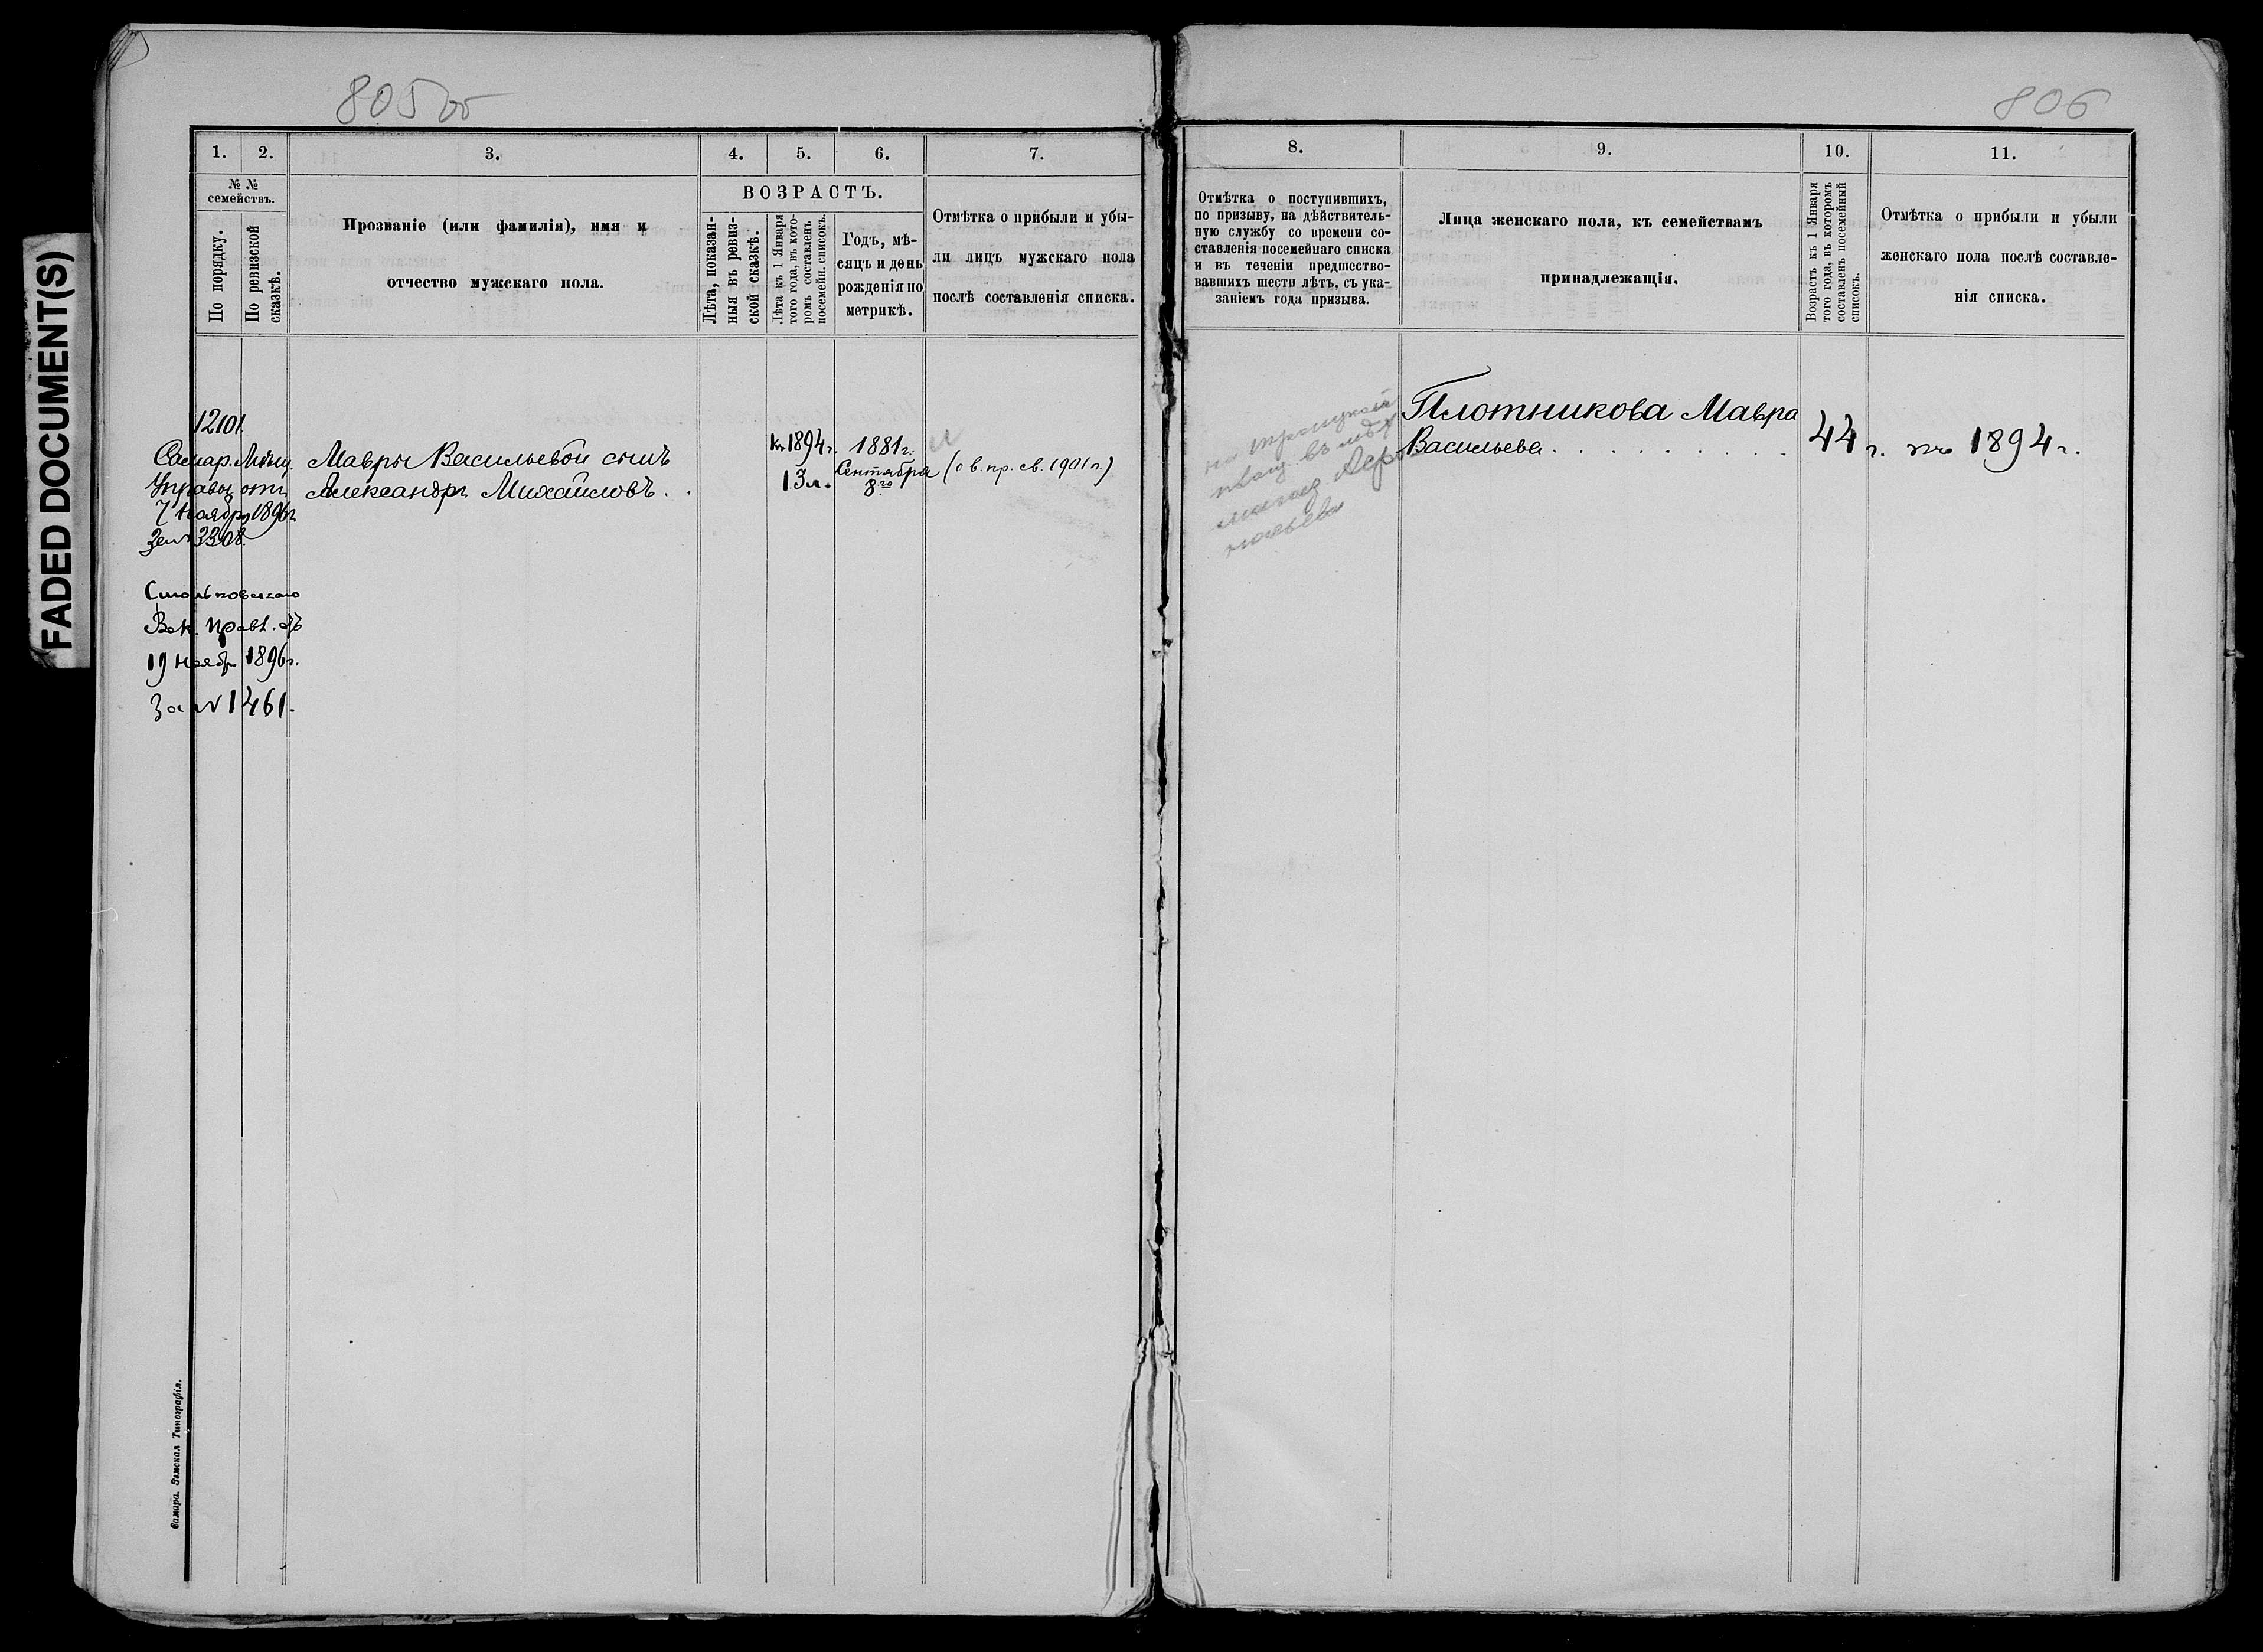 805 об
806
FADED DOCUMENT(S)
1.
2.
3.
4.
5.
6.
7.
№ №
семействъ.
По порядку.
По ревизской
сказкѣ.
Прозваніе (или фамилія), имя и
отчество мужскаго пола.
ВОЗРАСТЪ.
Лѣта, показан-
ныя въ ревиз-
ской сказкѣ.
Лѣта къ 1 Января
того года, въ кото-
ромъ составленъ
посемейн. списокъ.
Годъ, мѣ-
сяцъ и день
рожденія по
метрикѣ.
Отмѣтка о прибыли и убы-
ли лицъ мужскаго пола
послѣ составленія списка.
12101
Самар. Мѣщ.
Управы отъ
7 Ноября 1896 г.
за № 3308.
Вол. Правл. отъ
19 Нояб. 1896 г.
За № 1461.
Мавры Васильевой сынъ
Александръ Михайловъ . .
къ 1894 г.
13 л.
1881 г.
Сентября
8го
(о в. пр. св. 1901 г.)
Самара. Земская Типографія.
8.
9.
10.
11.
Отмѣтка о поступившихъ,
по призыву, на дѣйствитель-
ную службу со времени со-
ставленія посемейнаго списка
и въ теченіи предшество-
вавшихъ шести лѣтъ, съ ука-
заніемъ года призыва.
Лица женскаго пола, къ семействамъ
принадлежащія.
Возрастъ къ 1 Января
того года, въ которомъ
составленъ посемейный
списокъ.
Отмѣтка о прибыли и убыли
женскаго пола послѣ составле-
нія списка.
Плотникова Мавра
Васильева . . . . . . . . .
44 г.
къ 1894 г.